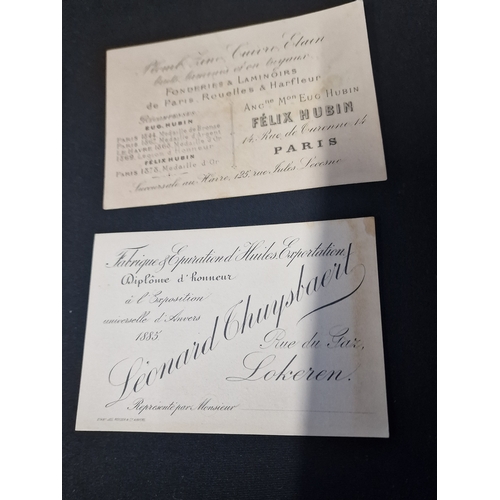 Plomb, Zinc, Cuivre, Etain
bruts, laminés et en tuyaux
FONDERIES & LAMINOIRS
de Paris, Rouelles & Harfleur
EUG. HUBIN
PARIS 1867, Médaille d'Argent
LE HAVRE 1868, Médaille d'Or
1869, Légion d'Honneur
FÉLIX HUBIN
PARIS 1878, Médaille d'Or
ANCNE MON EUG. HUBIN
FÉLIX HUBIN
14, Rue de Turenne, 14
PARIS
Succursale au Havre, 125, rue Jules Lecesne
Fabrique & Epuration d'Huiles, Exportation.
Diplôme d'honneur
à l'Exposition
universelle d'Anvers
1885
Léonard Thuysbaert
Rue du Gaz,
Lokeren.
Représenté par Monsieur